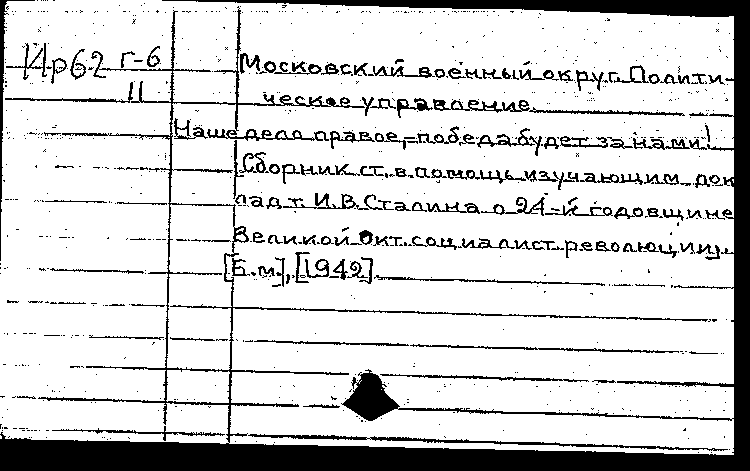 14р62 г-6
11
Московский военный округ. Полити-
ческое управление.
Наше дело правое, - победа будет за нами!
Сборник ст. в помощь изучающим док
лад т. И.В. Сталина о 24-й годовщине
Великой Окт. социалист. революции.
[Б.м.], [1942].